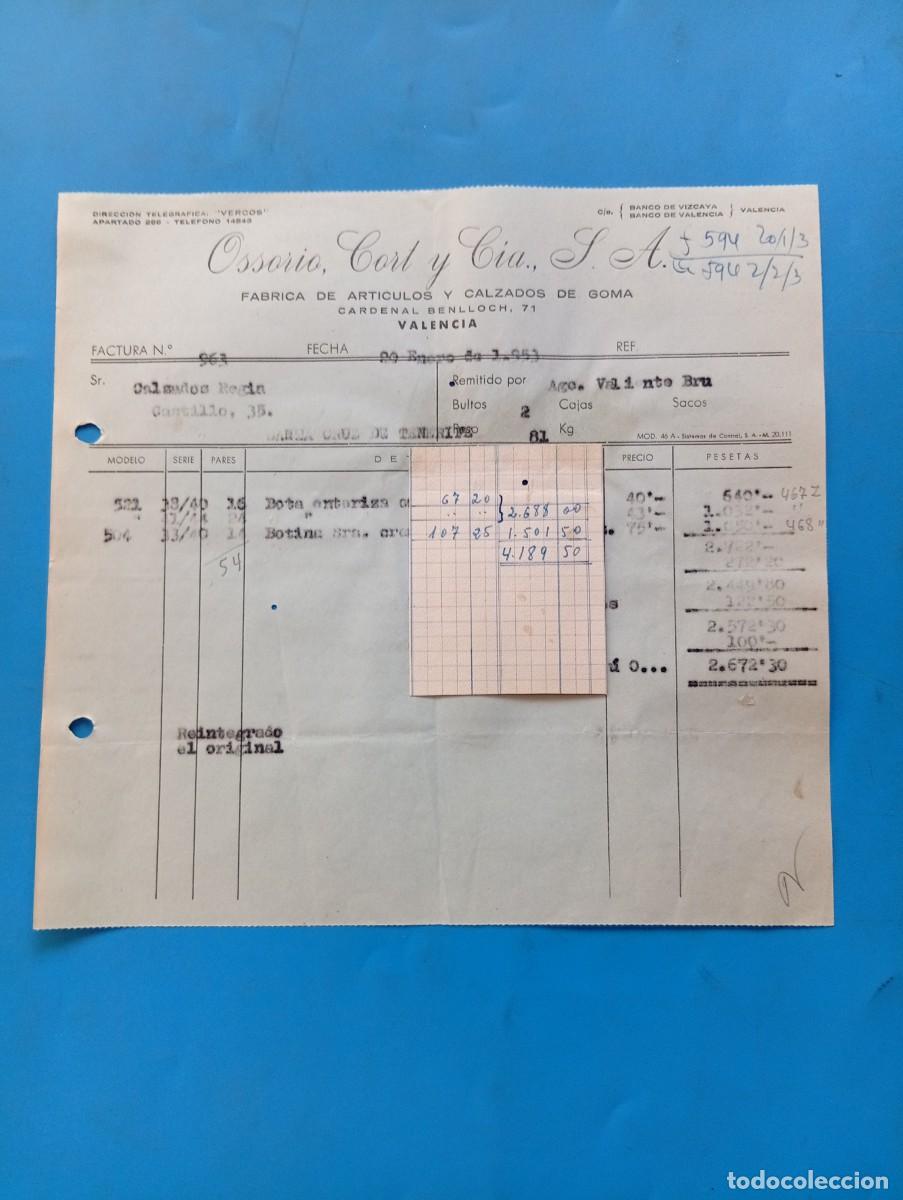 DIRECCION TELEGRAFICA: "VERCOS"
APARTADO 266 - TELEFONO 14843
C/c. { BANCO DE VIZCAYA } VALENCIA
BANCO DE VALENCIA
Ossorio, Cort y Cía., S. A.
594 20/1/3
594 2/2/3
FABRICA DE ARTICULOS Y CALZADOS DE GOMA
CARDENAL BENLLOCH, 71
VALENCIA
FACTURA N.º 963 FECHA 20 Enero de 1.953 REF.
Sr. Calzados Regia
Castillo, 35.
SANTA CRUZ DE TENERIFE
Remitido por Agc. Valiente Bru
Bultos 2 Cajas Sacos
Peso 81 Kg
MOD. 46 A - Sistemas de Control, S. A. - M. 20.111
MODELO SERIE PARES DE PRECIO PESETAS
521 38/40 16 Bota enteriza 40'- 640'- 467
" 24 43'- 1.032'- "
504 33/40 14 Botina Sra. 75'- 1.050'- 468 "
54
2.722'-
272'20
2.449'80
122'50
2.572'30
100'-
O... 2.672'30
67 20 } 2.688 00
" "
107 25 1.501 50
4.189 50
Reintegrado
el original
todocoleccion